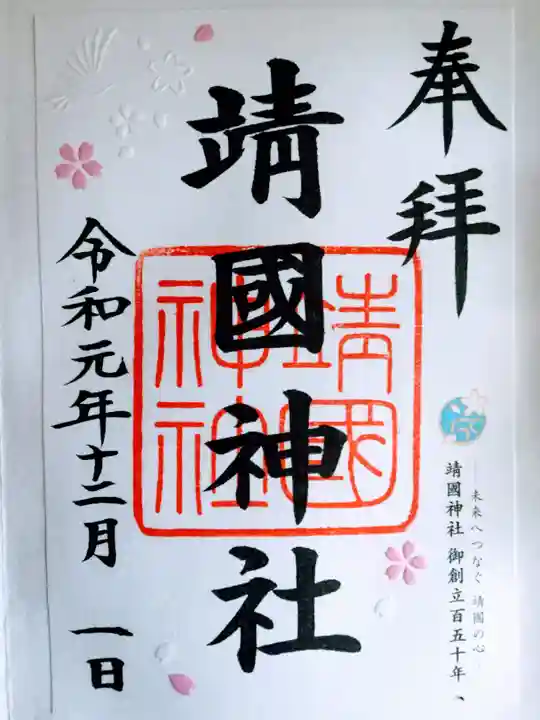 奉拝
150
―未来へつなぐ 靖國の心―
靖國神社 御創立百五十年
靖國神社
靖國
神社
令和元年十二月 一日